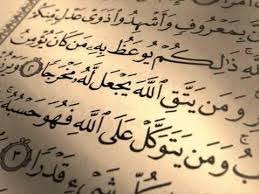 بِمَعْرُوفٍ وَأَشْهِدُوا۟ ذَوَىْ عَدْلٍ مِّنكُمْ
ذَٰلِكُمْ يُوعَظُ بِهِۦ مَن كَانَ يُؤْمِنُ
وَمَن يَتَّقِ ٱللَّهَ يَجْعَل لَّهُۥ مَخْرَجًا ٢
وَمَن يَتَوَكَّلْ عَلَى ٱللَّهِ فَهُوَ حَسْبُهُۥٓ
شَىْءٍ قَدْرًا ٣